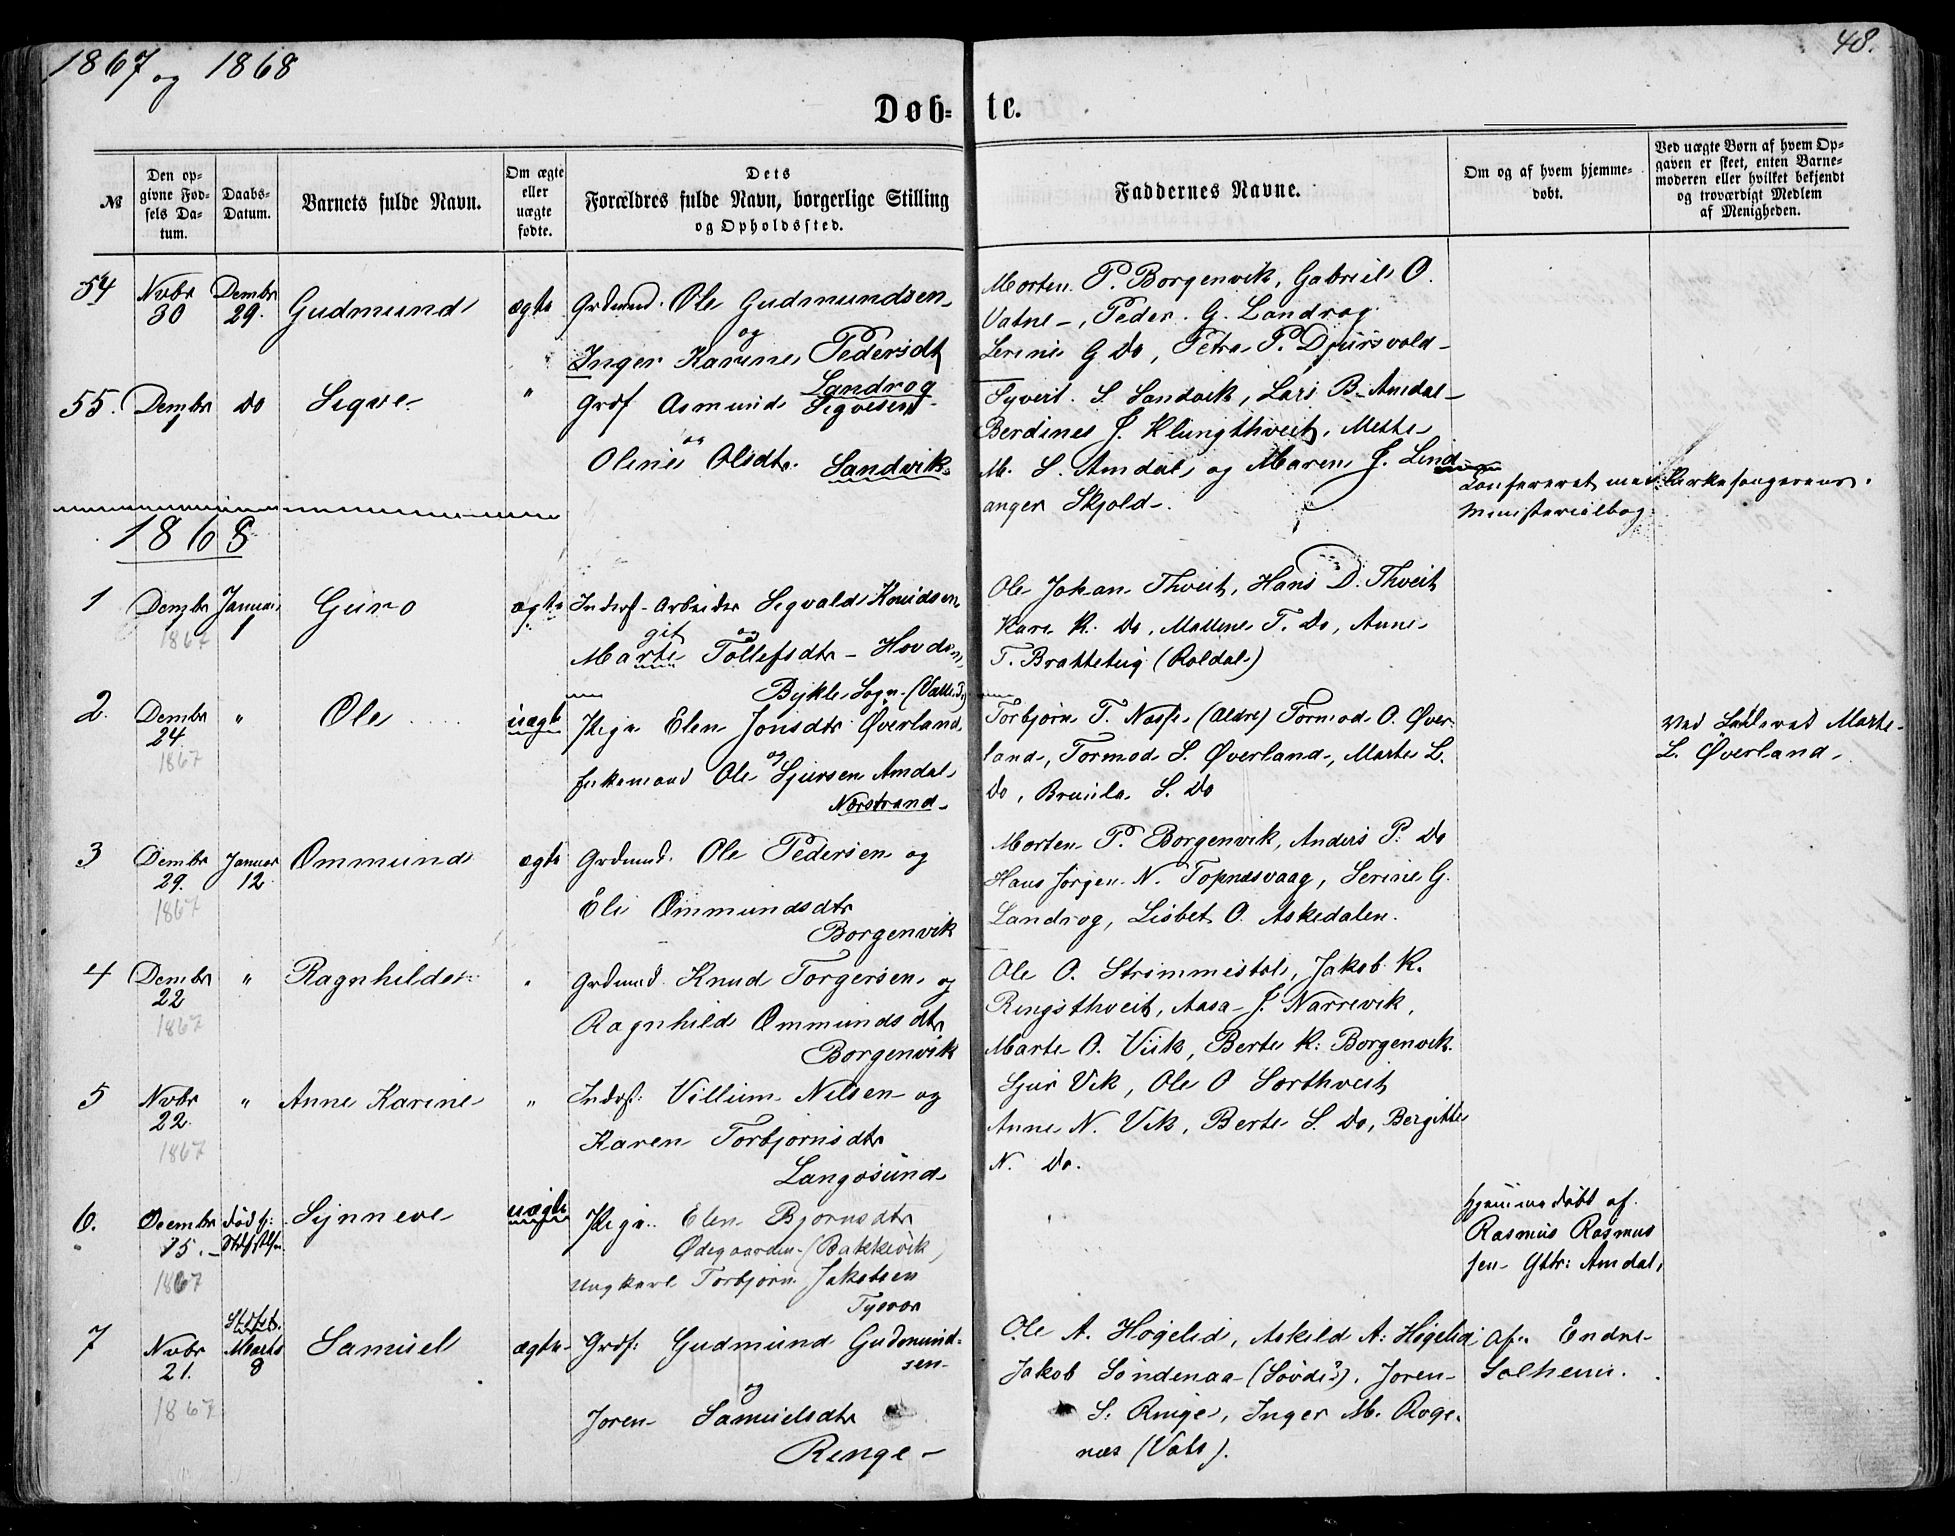 1867 og 1868
48.
Døb- te.
№
Den op-
givne Fød-
sels Da-
tum.
Daabs-
Datum.
Barnets fulde Navn.
Om ægte
eller
uægte
fødte.
Dets
Forældres fulde Navn, borgerlige Stilling
og Opholdssted.
Faddernes Navne.
Om og af hvem hjemme-
døbt.
Ved uægte Børn af hvem Op-
gaven er skeet, enten Barne-
moderen eller hvilket bekjendt
og troværdigt Medlem
af Menigheden.
54 Nvbr 30 Dembr 29. Gudmund ægte
Grdmnd. Ole Gudmundsen
og
Inger Karine Pedersdt
Landrog
Morten P. Borgenvik, Gabriel O.
Vatne, Peder G. Landrog
Serine G Do, Petra P. Djursvold
55. Dembr 1 do Sigve "
Grdf Asmund Sigvesen
og
Oline Olsdtr. Sandvik
Syvert S Sandvik, Lars B. Amdal
Berdines J. Klungthveit, Mette
M. S. Amdal og Maren J. Lind
anger Skjold.
Confereret med Kirkesangerens
Ministerialbog.
1868
1 Dembr 1 1867 Januar 1 Guro ægte
Inderst Arbeider Sigvald Knudsen
git og
Marte Tollefsdtr Hovden
Bykle Sogn (Valle)
Ole Johan Thveit, Hans D. Thveit
Kari K. Do, Mallene T. Do, Anne
T. Bratteteig (Røldal)
2. Dembr 24. 1867 " Ole uægte
Pige Elen Jonsdtr Øverland
og
Enkemand Ole Sjursen Amdal
Nærstrand
Torbjørn T. Næsse (Ældre) Tormod O. Øver-
land, Tormod S. Øverland, Marte L.
Do, Brunla S. Do
Ved Marte
L. Øverland.
3 Dembr 29. 1867 Januar 12 Ommund ægte
Grdmnd. Ole Pedersen og
Eli Ommundsdtr
Borgenvik
Morten P. Borgenvik, Anders P. Do
Hans Jørgen N. Topnæsvaag, Serine G.
Landrog, Lisbet O. Askedalen.
4 Dembr 22 1867 " Ragnhilde "
Grdmnd. Knud Torgersen og
Ragnhild Ommundsdtr
Borgenvik
Ole O. Strømmestøl, Jakob K.
Ringsthveit, Aasa J. Narrevik,
Marte O. Viik, Berte K. Borgenvik.
5 Nvbr 22. 1867 " Anne Karine "
Inderst: Villum Nilsen og
Karen Torbjørnsdtr
Langøsund
Sjur Vik, Ole O Sørthveit
Anne N. Vik, Berte S. Do, Bergitte
N. Do.
6. Decmbr 15. 1867 Synneve uægte
Pige Elen Bjørnsdtr
Ødegaarden (Bakkevik)
Ungkarl Torbjørn Jakobsen
Tysvær
hjemmedøbt af
Rasmus Rasmus
sen Amdal,
7 Nvbr 21. 1867 Stfst. Marts 8 Samuel ægte
Grdf. Gudmund Gudmund-
sen
og
Joren Samuelsdtr
Ringe
Ole A. Høgelid, Askild A. Høgelid
Jakob Søndenaa (Søvde), Joren
S. Ringe, Inger M. Roge-
næs (Vats).
Af Endre
Solheim.